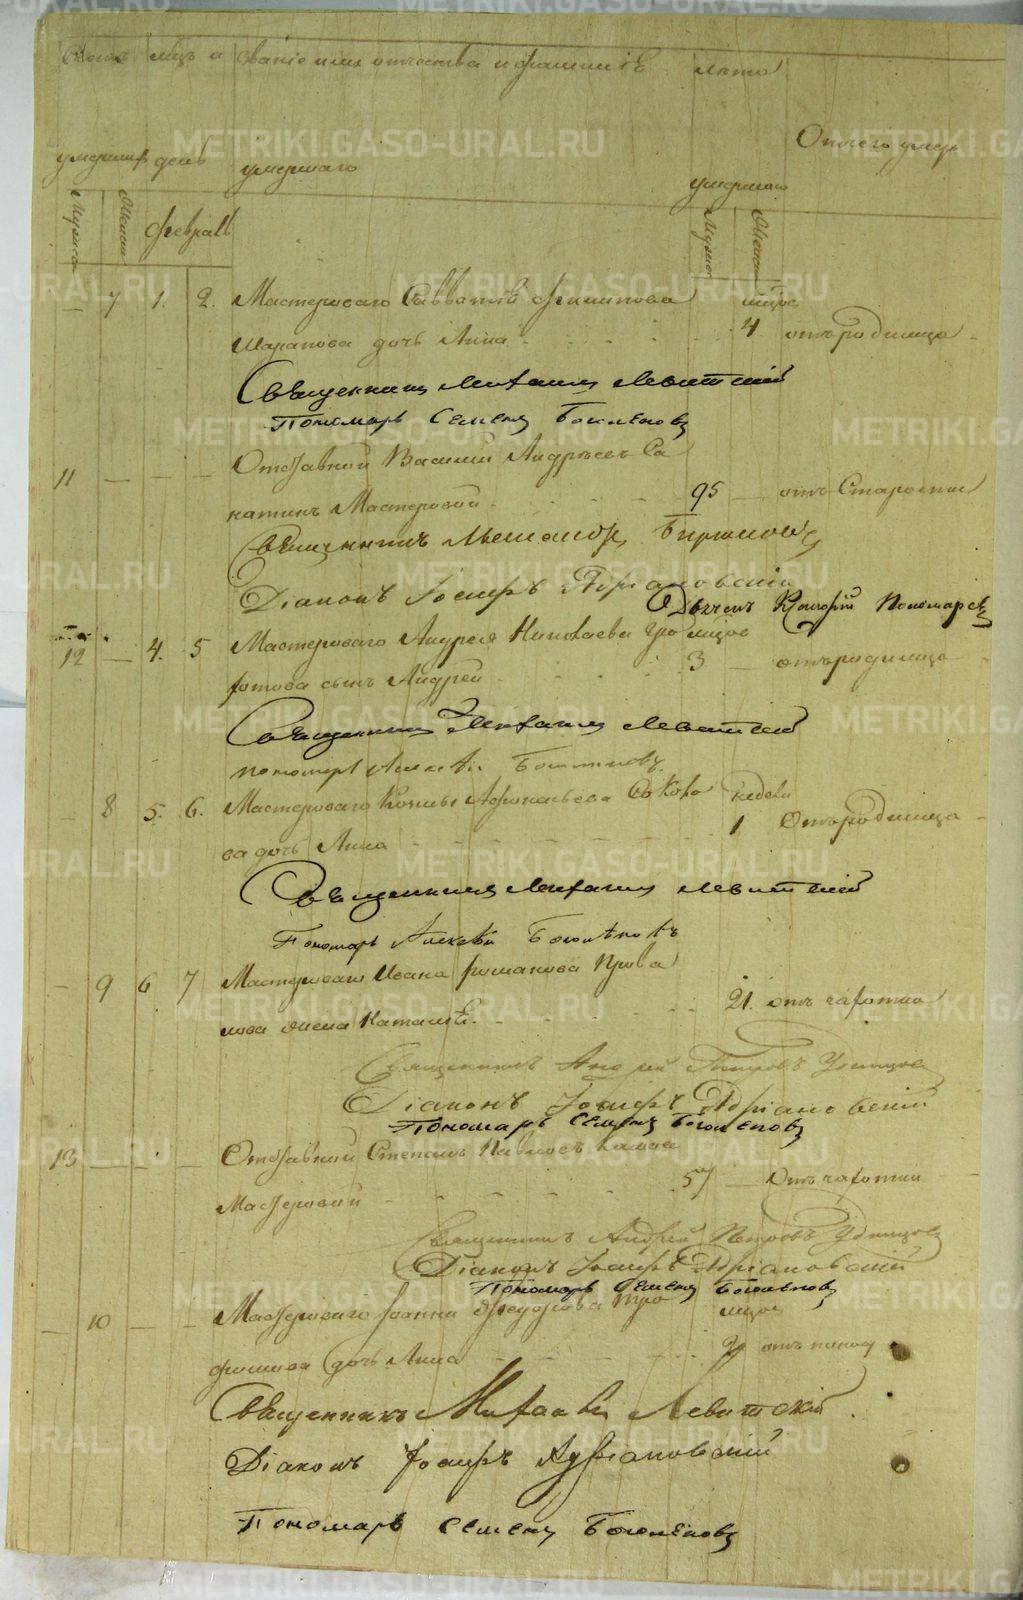 METRIKI.GASO-URAL.RU
званіе имя отчества и фамиліѣ
лѣта
умершаго
Отчего умер
умерших день
умершаго
Мужеска
Женска
февраль
Мужеска
Женска
7 1. 2. Мастероваго Савватія Филипова
Шарапова дочь Анна 4 отъ родимца
Священникъ Михаилъ Левитскій
Пономарь Семенъ Боголеповъ
11 Отставной Василій Андреевъ Са
катинъ Мастеровой 95 отъ Старости
Священникъ Александръ Бирюковъ
Діаконъ Іосифъ Адріановскій
Дьячекъ Пономаревъ
12 4. 5 Мастероваго Андрея Николаева
сынъ Андрей 3 отъ родимца
Священникъ Михаилъ Левитскій
пономарь Алексѣй Боголеповъ
8 5. 6. Мастероваго Козмы Афонасьева Соколо недели
ва дочь Анна 1 Отъ родимца
Священникъ Михаилъ Левитскій
Пономарь Алексѣй Боголѣповъ
9 6 7 Мастероваго Ивана Романова Прива
лова жена Наталья 21. отъ чахотки
Священникъ Андрей Петровъ Удинцовъ
Діаконъ Іосифъ Адріановскій
Пономарь Семенъ Боголеповъ
13 Отставной Степанъ Павловъ
Мастеровой 57 Отъ чахотки
Священникъ Андрей Петровъ Удинцовъ
Діаконъ Іосифъ Адріановскій
Пономарь Семенъ Боголеповъ
10 Мастероваго Іоанна Федорова Тро
фимова дочь Анна
Священникъ Михаилъ Левитскій
Діаконъ Іосифъ Адріановскій
Пономарь Семенъ Боголеповъ